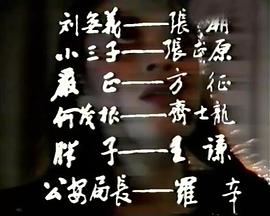 刘金義——張 朔
小三子——張正原
嚴 正——方 征
何茂根——齊士龍
胖 子——王 谦
公安局長——羅 辛